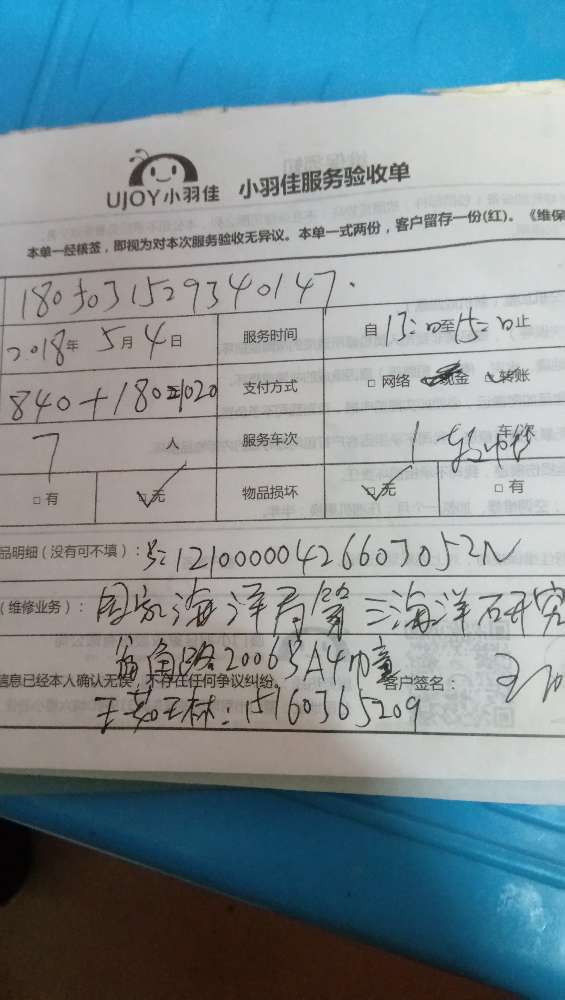 UJOY小羽佳 小羽佳服务验收单
本单一经核签，即视为对本次服务验收无异议。本单一式两份，客户留存一份(红)。《维保
1805031529340147.
2018年 5月 4日 服务时间 自 13:00至15:00止
840+180=1020 支付方式 □网络 现金 ☑转账
7 人 服务车次 1 车次
□有 ☑无 物品损坏 ☑无 □有
品明细（没有可不填）: 12100000426603052N
（维修业务）: 国家海洋局第三海洋研究
路200号A4幢
信息已经本人确认无误，不存在任何争议纠纷。 客户签名：
15160365209